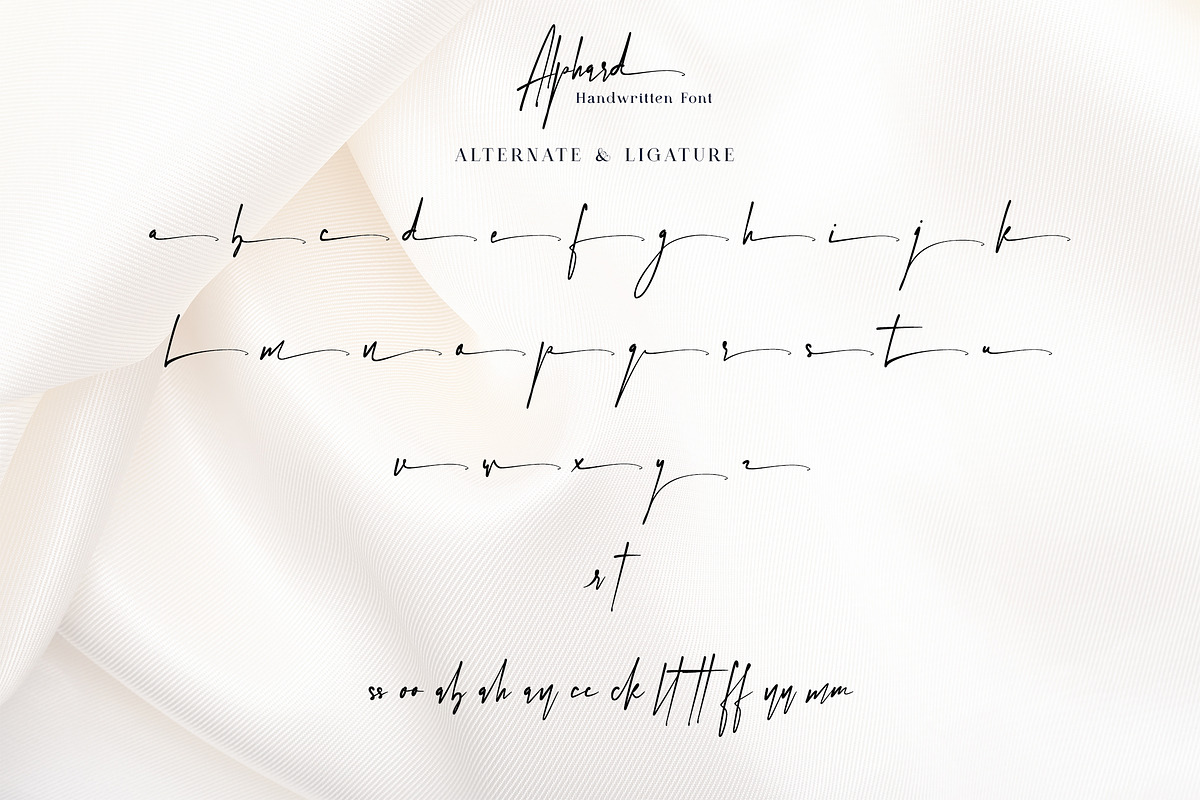 Alphard
Handwritten Font
ALTERNATE & LIGATURE
a b c d e f g h i j k
l m n o p q r s t u
v w x y z
r t
ss oo ab ah ay cc ck lt tt ff yy mm